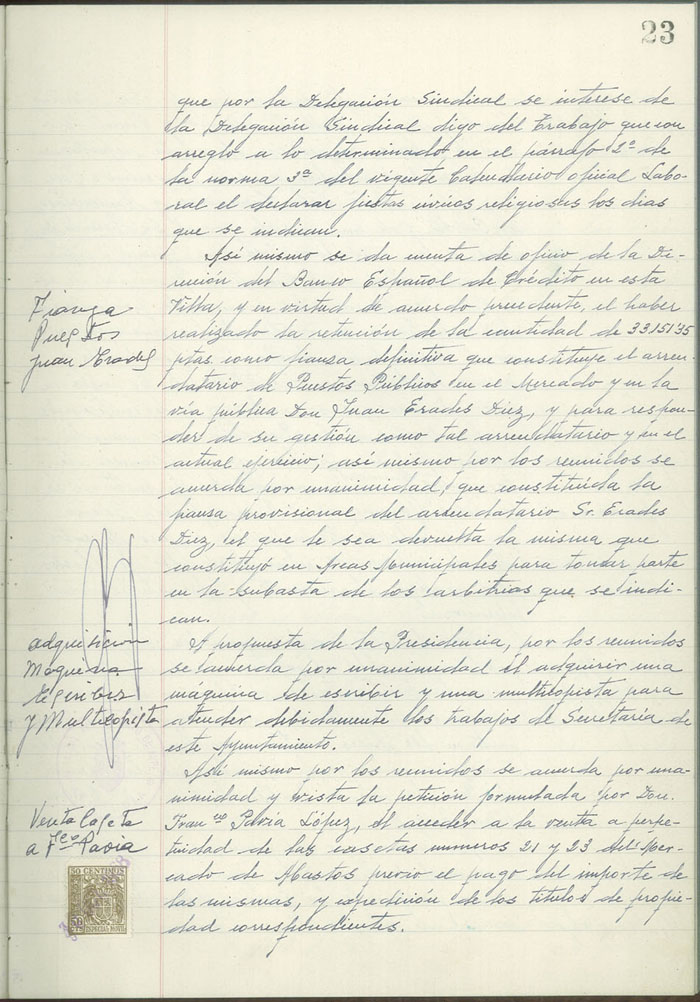 23
que por la Delegación Sindical se interese de
la Delegación Sindical digo del Trabajo que con
arreglo a lo determinado en el párrafo 2º de
la norma 3ª del vigente Calendario oficial Labo-
ral el declarar fiestas civicos religiosas los dias
que se indican.
Así mismo se da cuenta de oficio de la Di-
rección del Banco Español de Crédito en esta
Villa, y en virtud de acuerdo precedente, el haber
realizado la retención de la cantidad de 33.151'35
ptas como fianza definitiva que constituye el arren-
datario de Puestos Públicos en el Mercado y en la
via pública Don Juan Erades Diez, y para respon-
der de su gestión como tal arrendatario y en el
actual ejercicio; así mismo por los reunidos se
acuerda por unanimidad, que constituida la
fianza provisional del arrendatario Sr. Erades
Diez, el que le sea devuelta la misma que
constituyó en Arcas Municipales para tomar parte
en la subasta de los arbitrios que se indi-
can.
A propuesta de la Presidencia, por los reunidos
se acuerda por unanimidad el adquirir una
máquina de escribir y una multicopista para
atender debidamente los trabajos de Secretaría de
este Ayuntamiento.
Así mismo por los reunidos se acuerda por una-
nimidad y vista la petición formulada por Don
Franco Pavia López, el acceder a la venta a perpe-
tuidad de las casetas numeros 21 y 23 del Mer-
cado de Abastos previo el pago del importe de
las mismas, y expedición de los titulos de propie-
dad correspondientes.
Fianza
Puestos
Juan Erades
adquisicion
Maquina
Escribir
y Multicopista
Venta Caseta
a Fco Pavia
50 CENTIMOS
50
CTS
ESPECIAL MOVIL